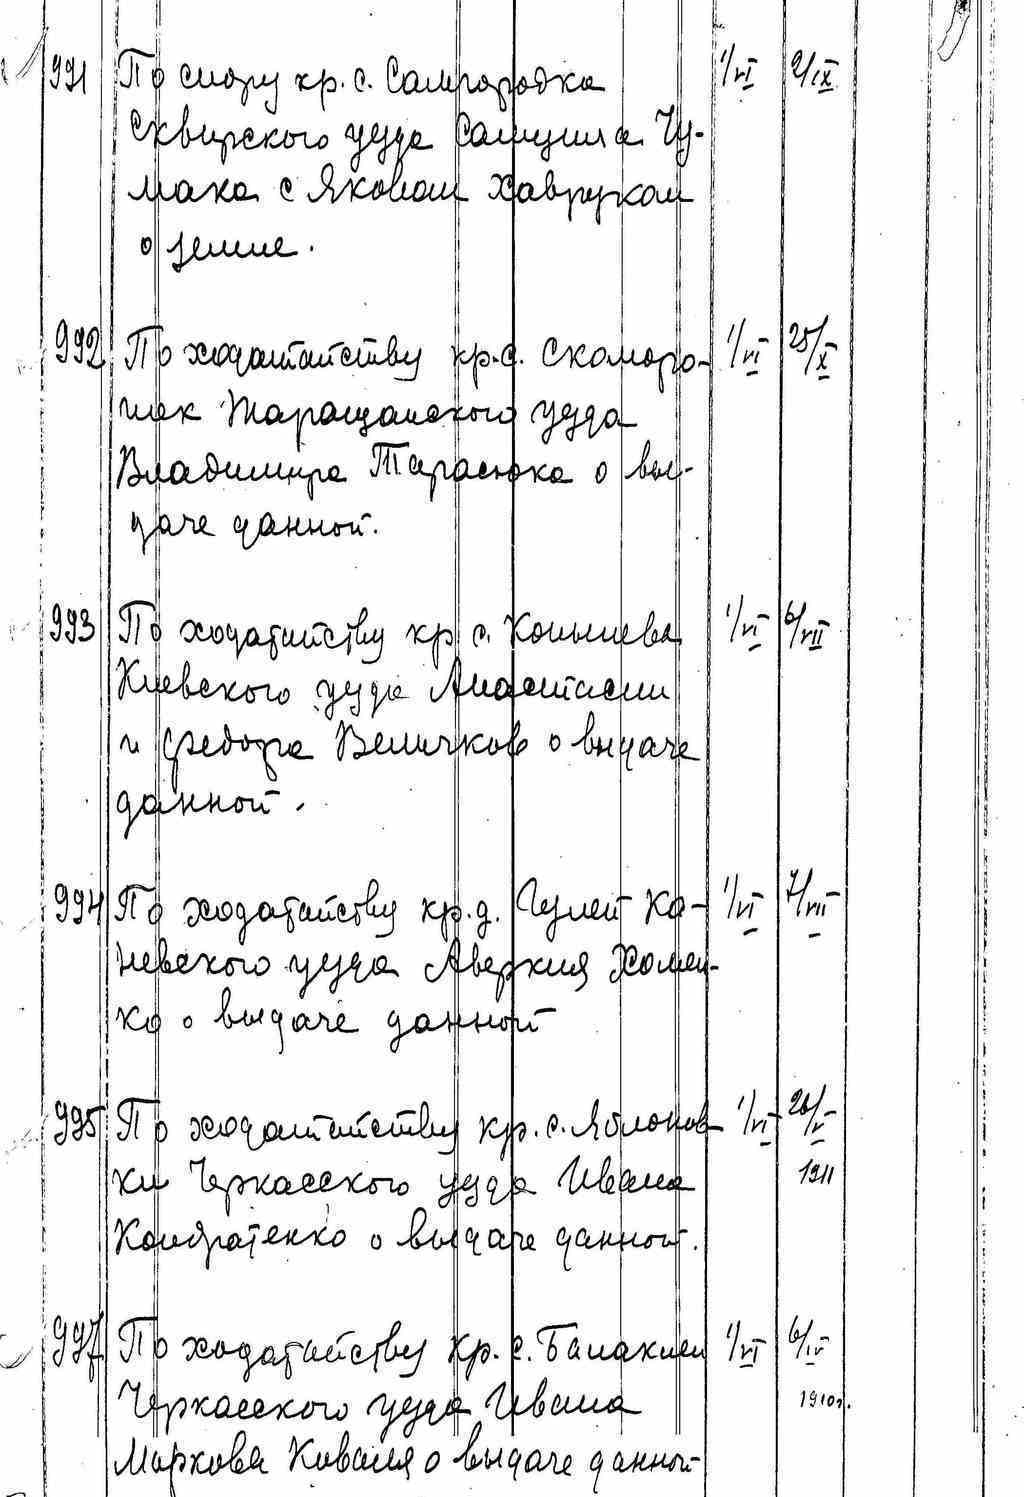 991 По спору кр. с. Самгородка 1/VI 2/IX
Сквирского уезда Самуила Чу-
мака с Яковом Хавруком
о земле.
992 По ходатайству кр. с. Скоморо- 1/VI 25/X
шек Таращанского уезда
Владимира Тарасюка о вы-
даче данной.
993 По ходатайству кр. с. Копылева 1/VI 6/VII
Киевского уезда Анастасии
и Федора Величков о выдаче
данной.
994 По ходатайству кр. д. Гулей Ка- 1/VI 7/VII
невского уезда Аверкия Хомен-
ко о выдаче данной
995 По ходатайству кр. с. Яблонов- 1/VI 20/V
ки Черкасского уезда Ивана 1911
Кондратенко о выдаче данной.
997 По ходатайству кр. с. Балаклеи 1/VI 6/IV
Черкасского уезда Ивана 1910г.
Маркова Коваля о выдаче данной